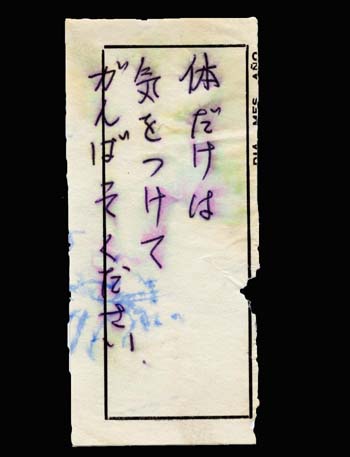 体だけは
気をつけて
がんばってください.
DIA MES AÑO